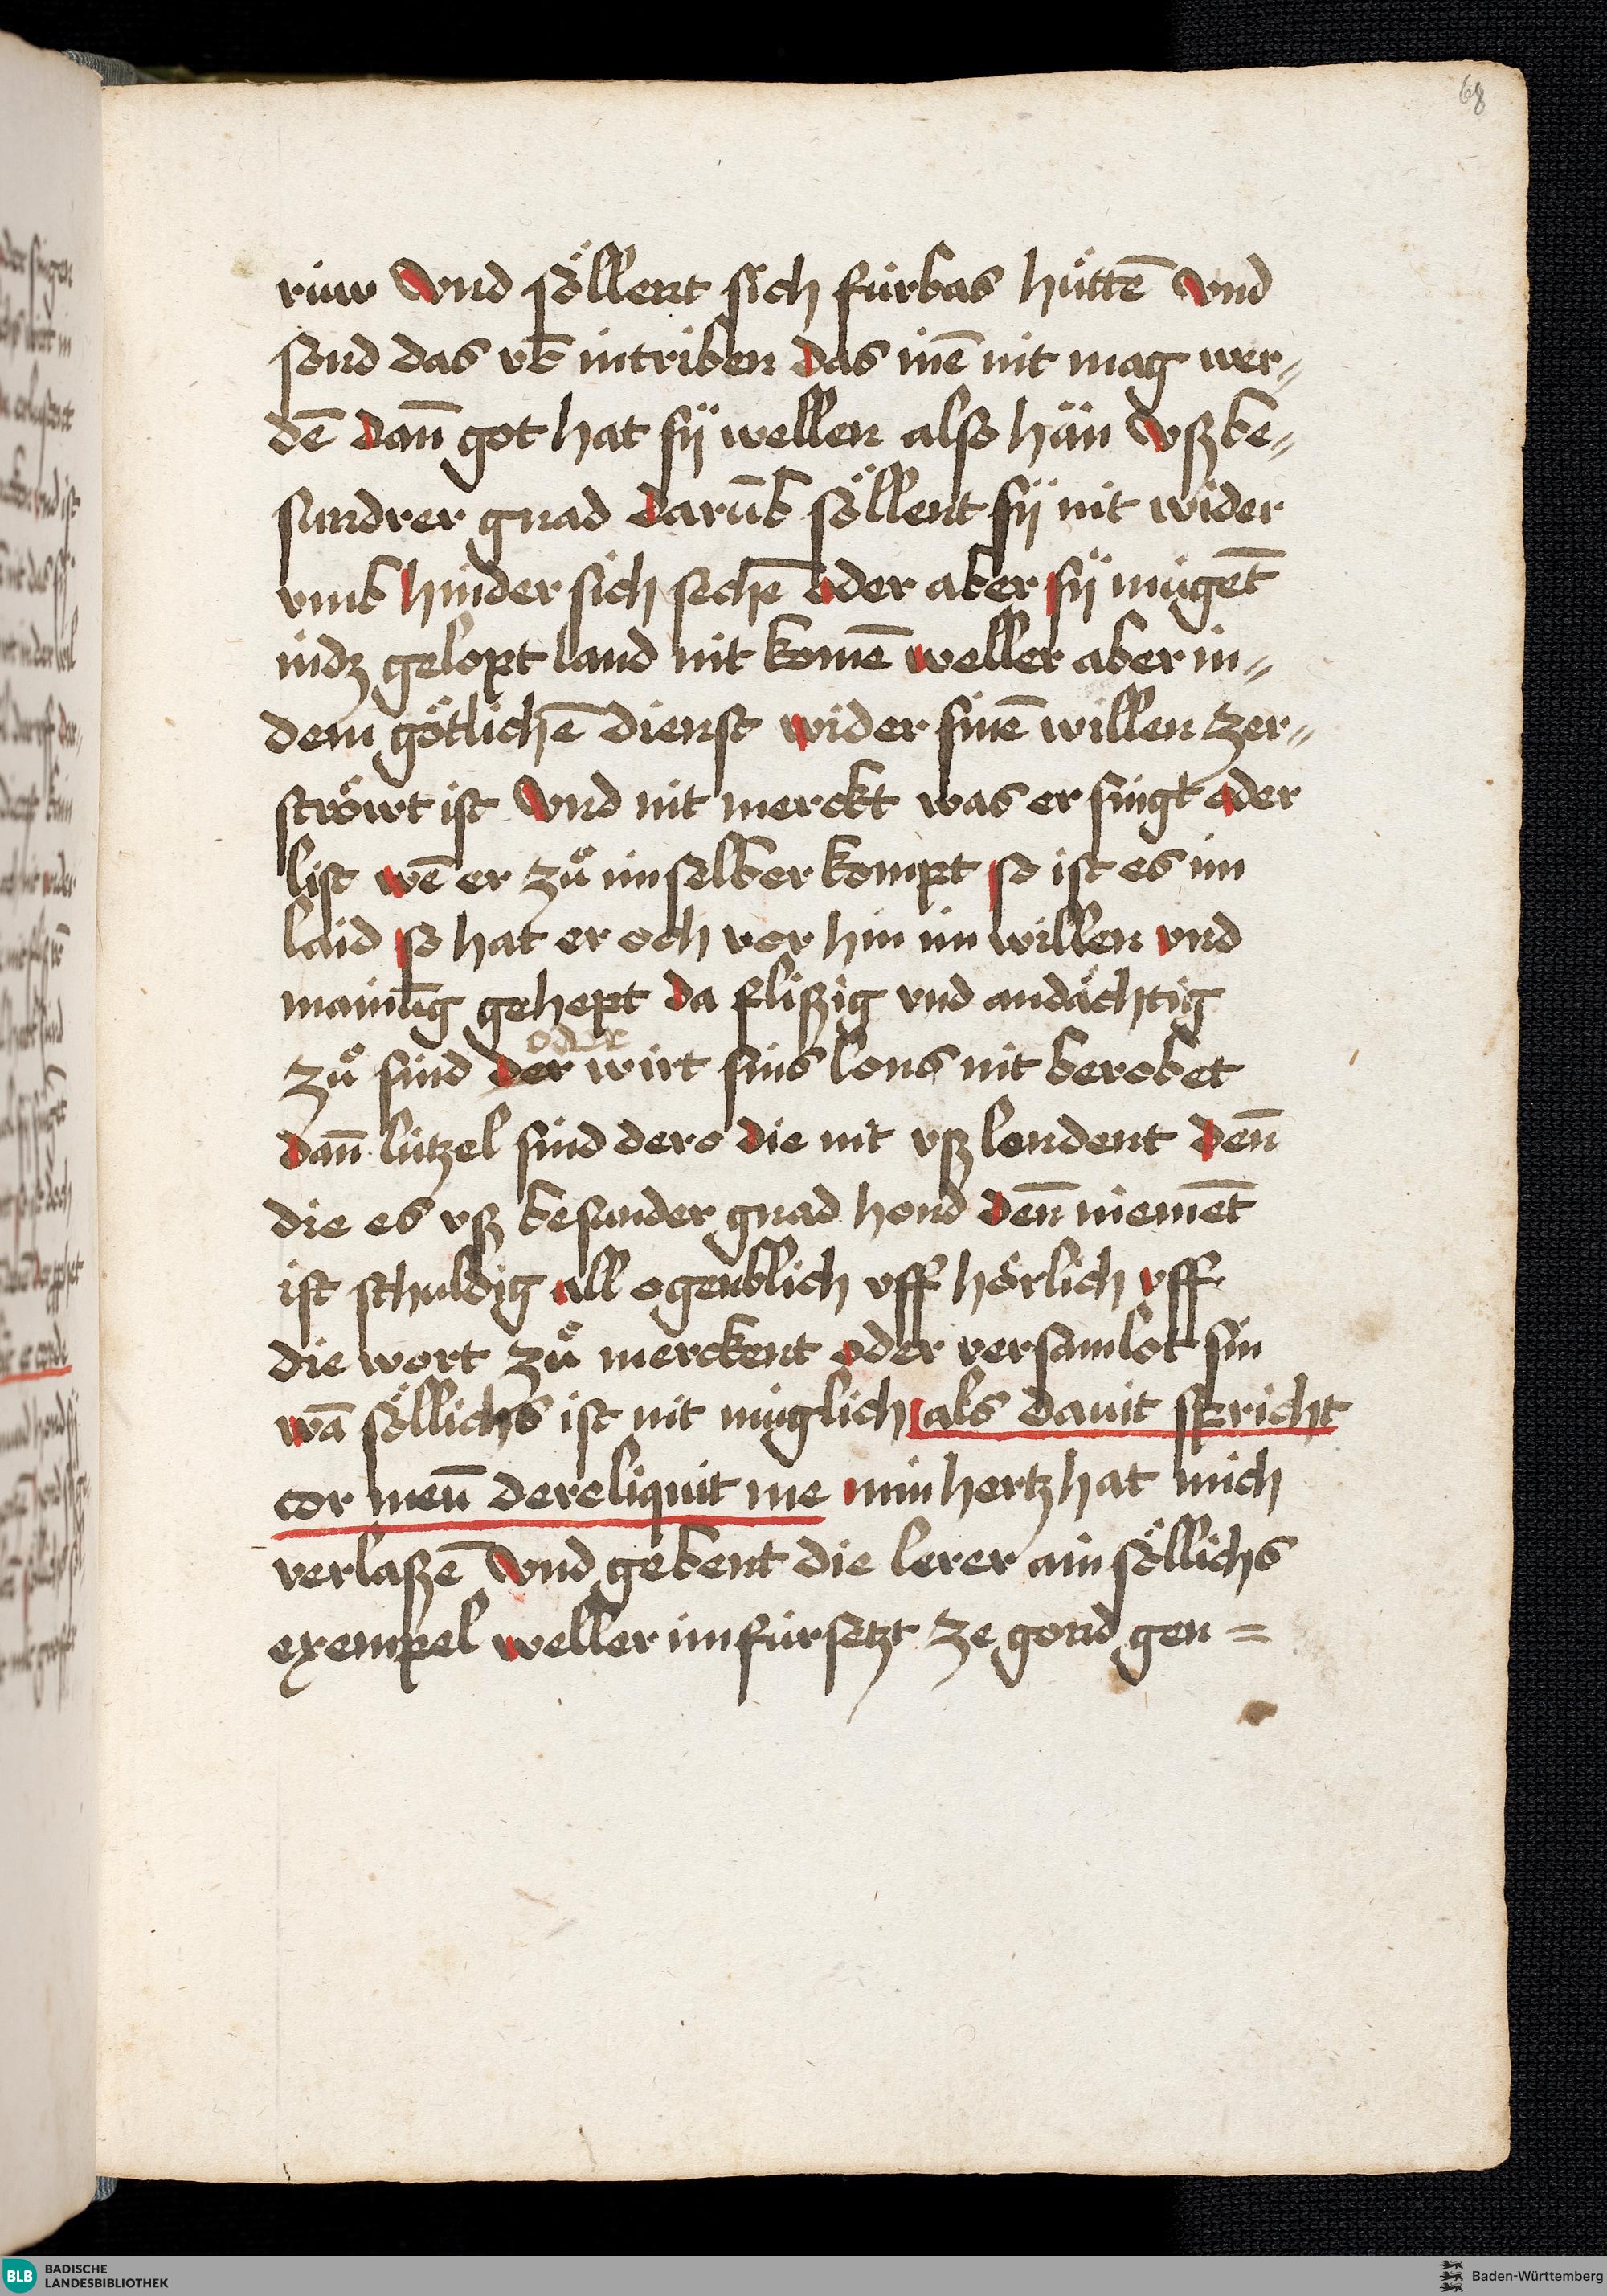 68
rüw Vnd söllent sich fürbas hüttē Vnd
sond das vē intriben das inē nit mag wer„
dē dañ got hat sÿ wellen also hän Vß be„
sundrer gnad darūb söllent sÿ nit wider
vmb hinder sich sechē oder aber sÿ mügēt
indz gelopt land nit komē weller aber in„
dem götlichē dienst wider sinē willen zer„
ströwt ist Vnd nit merckt was er singt oder
list wē er zů im selber kompt so ist es im
laid so hat er och vor hin im willen vnd
mainūg gehept da flißig vnd andächtig
oder
zů sind der wirt sins lons nit berobet
dañ lützel sind dero die nit vß lendent deñ
die es vß besunder gnad hond deñ niemēt
ist schuldig all ogenblich vff hörlich vff
die wort zů merckent oder versamlot sin
wā söllichs ist nit müglich als dauit spricht
cor meū dereliquit me min hertz hat mich
verlaßē Vnd gebent die lerer ain söllichs
exempel weller im für setzt ze gond gen =
BLB BADISCHE
LANDESBIBLIOTHEK
Baden-Württemberg